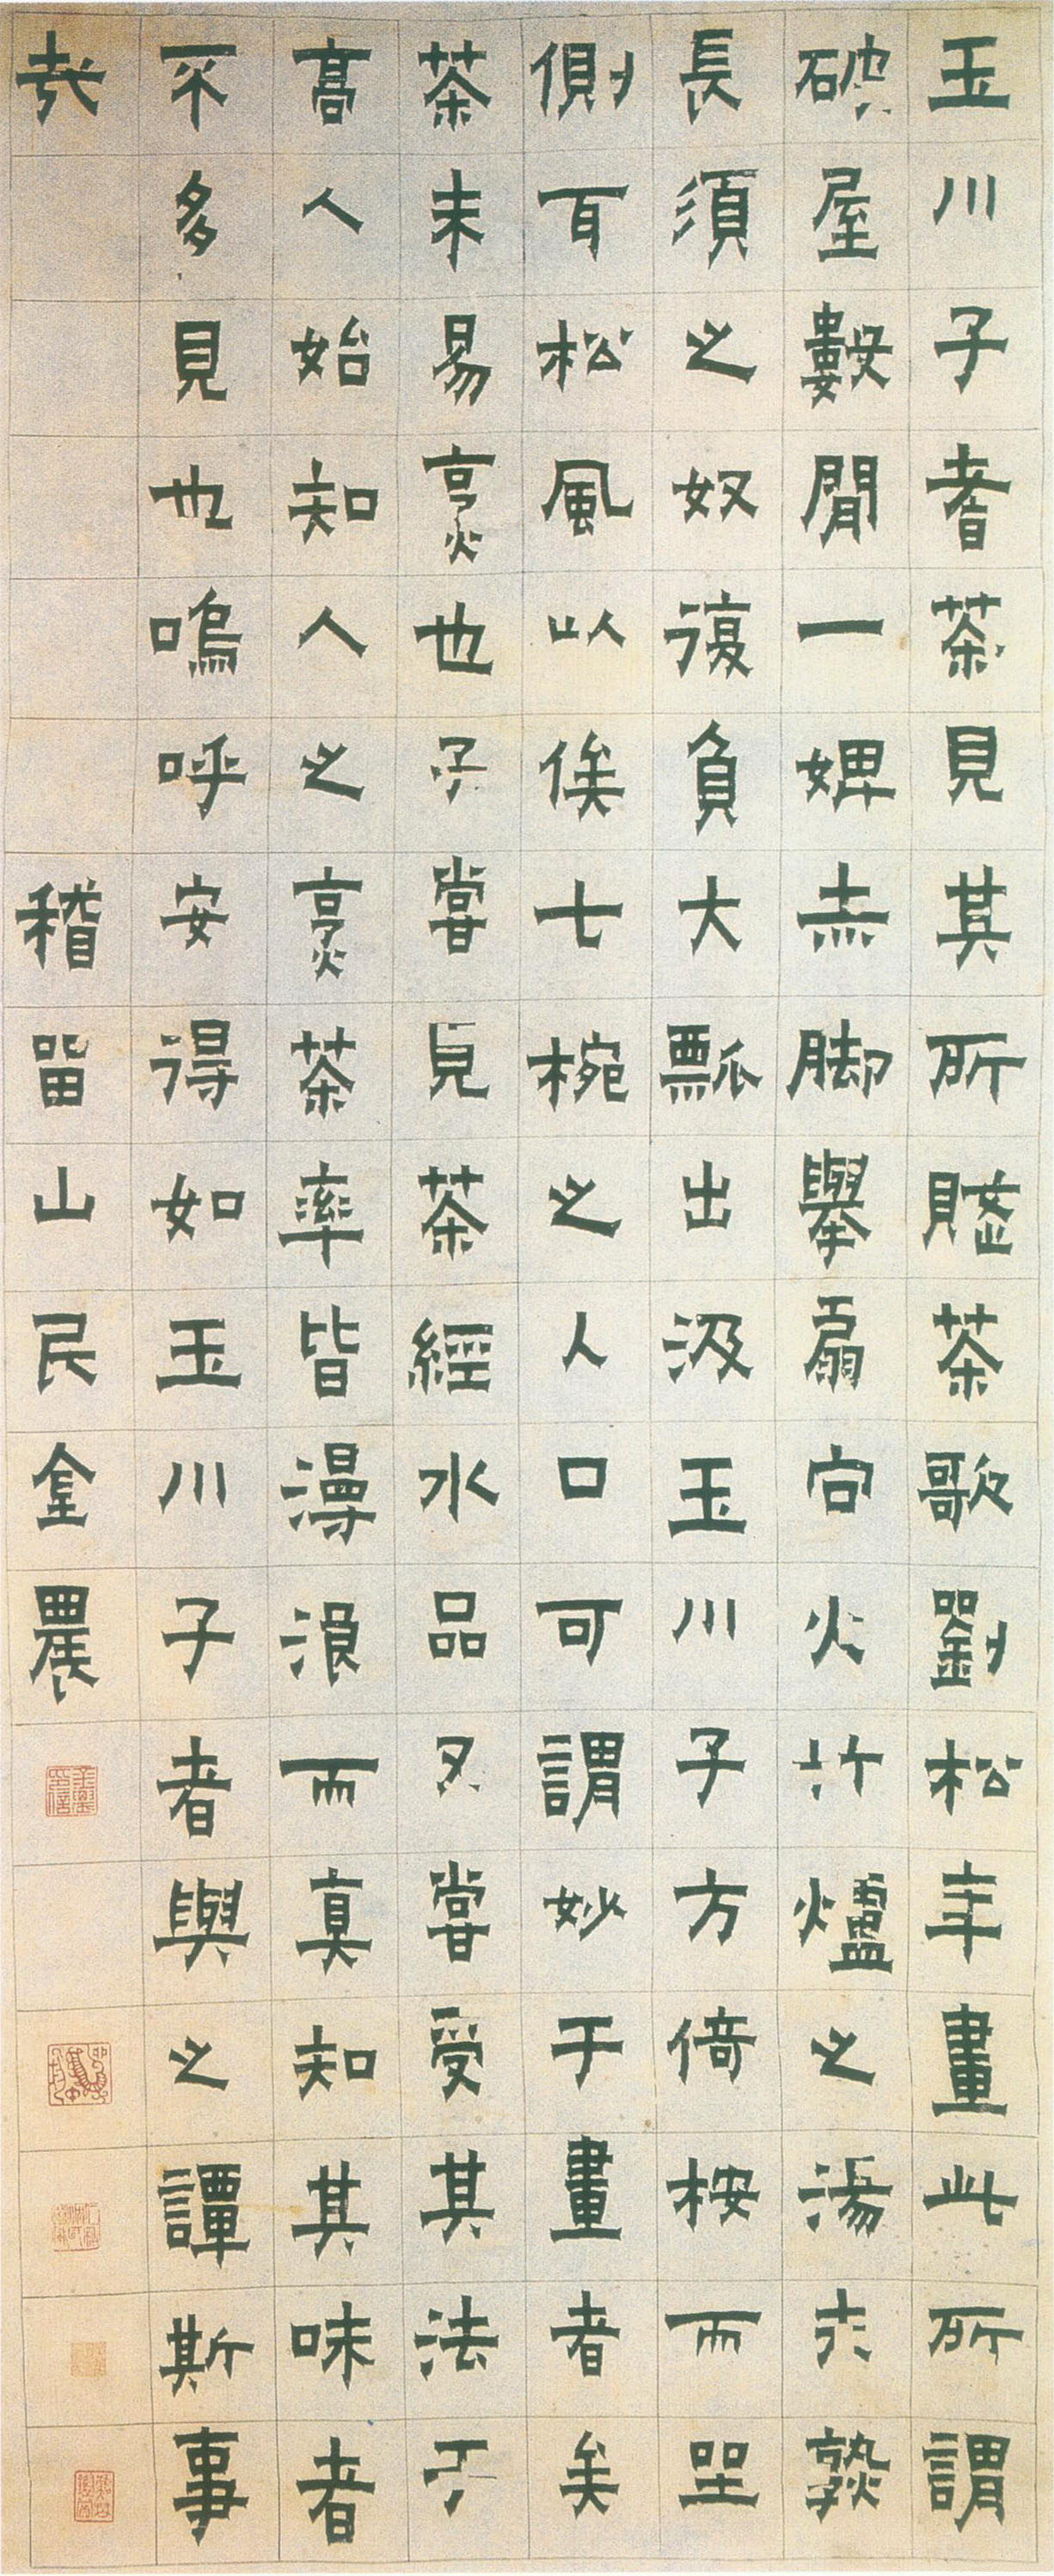 玉川子耆茶見其所賦茶歌劉松年畫此所謂
破屋數間一婢赤脚舉扇向火竹爐之湯未熟
長須之奴復負大瓢出汲玉川子方倚桉而坐
側耳松風以俟七椀之入口可謂妙于畫者矣
茶未易烹也予嘗見茶經水品又嘗受其法于
高人始知人之烹茶率皆漫浪而真知其味者
不多見也嗚呼安得如玉川子者與之譚斯事
哉 稽留山民金農